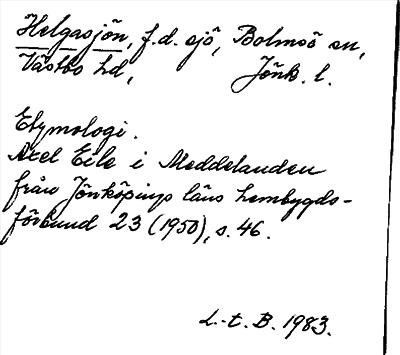 Helgasjön, f.d. sjö, Bolmsö sn,
Västbo hd, Jönk. l.
Etymologi.
Axel Eile i Meddelanden
från Jönköpings läns hembygds-
förbund 23 (1950), s. 46.
L.-t. B. 1983.